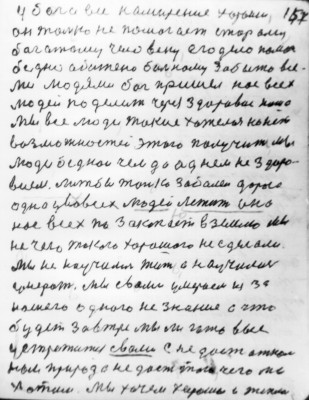 у бога все намирение хороши, 157
он только не помогает старому
богатому человеку егодело помоч
бедно обижено больному забыто все-
ми людями бог пришлы нас всех
людей поделит через здоровье
мы все люди такие хотело
возможностей этого получит мы
люди бедной чем до одне не здоро-
вием.
одна у всех людей летит она
нас всех по закопает в землю мы
не чего такого хорошого не сделали.
мы не научилис жит, а научилис
умерат. мы сами умераем из за
нашего одного не знание а что
будет завтре мы ли готовые
устретит с вами с не
природа не даст того чего мы
хотим. мы хочем хорошо и тепло